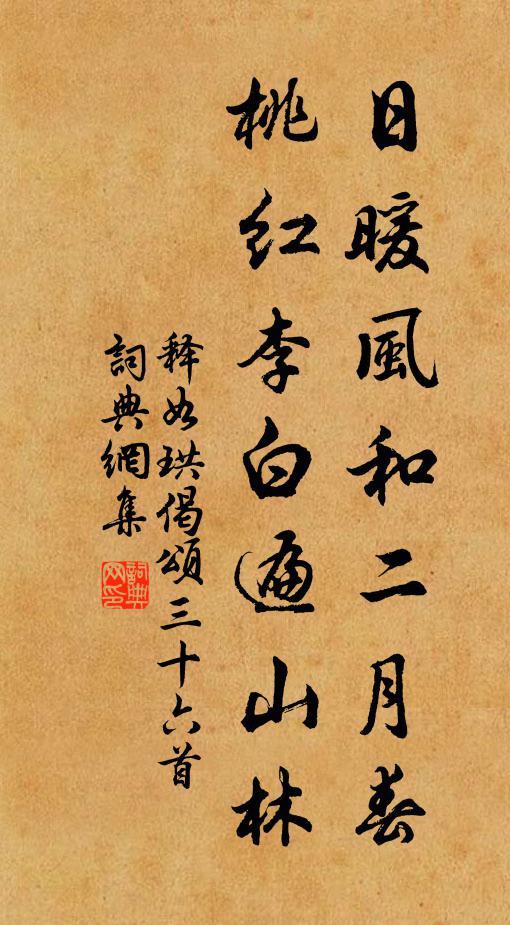 日暖風和二月春
桃紅李白遍山林
释如珙偈頌三十六首
詞典網集
詞典網印